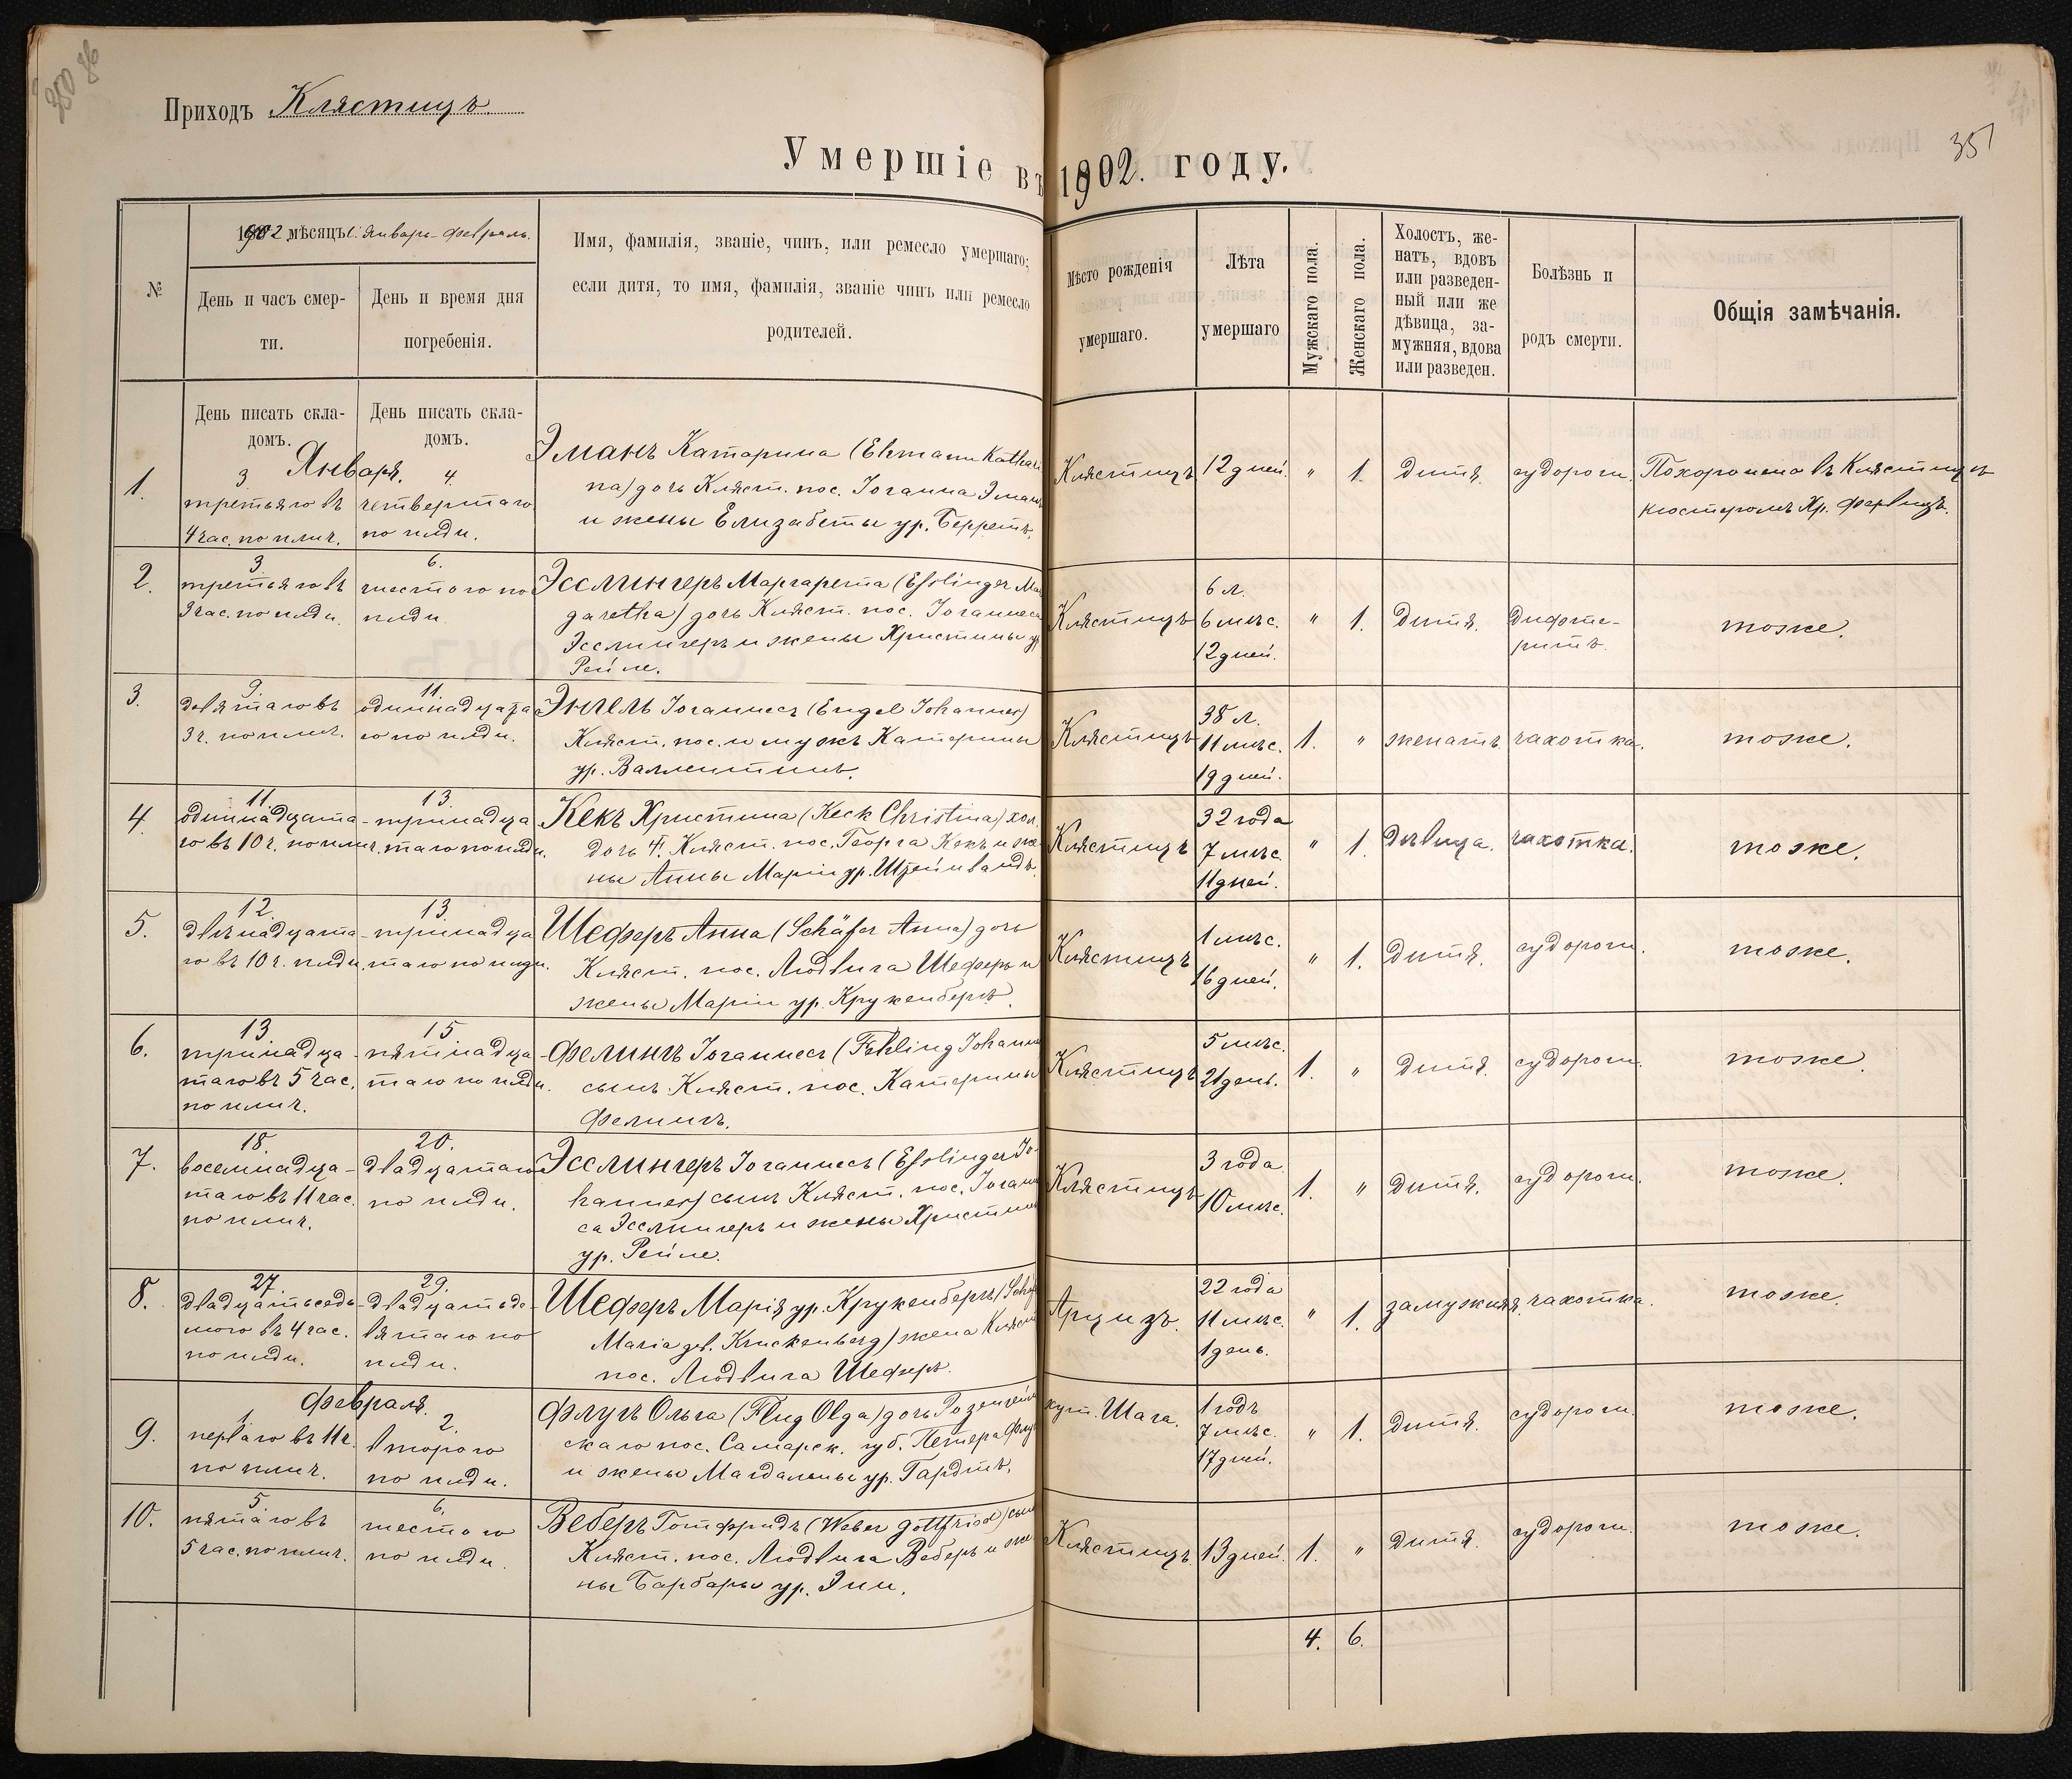 350 86
Приходъ Клястицъ.
Умершіе въ 1902. году.
351
№
1902 мѣсяцъ: Январь-Февраль.
День и часъ смер-
ти.
День и время дня
погребенія.
Имя, фамилія, званіе, чинъ, или ремесло умершаго;
если дитя, то имя, фамилія, званіе чинъ или ремесло
родителей.
Мѣсто рожденія
умершаго.
Лѣта
умершаго
Мужскаго пола.
Женскаго пола.
Холостъ, же-
натъ, вдовъ
или разведен-
ный или же
дѣвица, за-
мужняя, вдова
или разведен.
Болѣзнь и
родъ смерти.
Общія замѣчанія.
День писать скла-
домъ.
День писать скла-
домъ.
Января.
1.
3.
третьяго въ
4 час. по плнч.
4.
четвертаго
по плдн.
Эманъ Катарина (Ehmann Kathari
na) дочь Кляст. пос. Іоганна Эманъ
и жены Елизабеты ур. Берретъ.
Клястицъ
12 дней.
"
1.
дитя.
судороги.
Похоронена въ Клястицѣ
кюстеромъ Хр. Фервицъ.
2.
3.
третьяго въ
3 час. по плдн.
6.
шестого по
плдн.
Эсслингеръ Маргарета (Esslinger Mar
garetha) дочь Кляст. пос. Іоганнеса
Эсслингеръ и жены Христины ур
Рейле.
Клястицъ
6 л.
6 мѣс.
12 дней.
"
1.
Дитя.
Дифте-
ритъ.
тоже.
3.
9.
девятаго въ
3 ч. по плнч.
11.
одиннадцата
го по плдн.
Энгель Іоганнесъ (Engel Johannes)
Кляст. пос. и мужъ Катерины
ур. Валлентинъ.
Клястицъ
38 л.
11 мѣс.
19 дней.
1.
"
женатъ.
чахотка.
тоже.
4.
11.
одиннадцата-
го въ 10 ч. по плнч.
13.
тринадца
таго по плдн.
Кекъ Христина (Keck Christina) хол.
дочь †. Кляст. пос. Георга Кекъ и же
ны Анны Маріи ур. Штейнвандъ.
Клястицъ
32 года
7 мѣс.
11 дней.
"
1.
Дѣвица.
чахотка.
тоже.
5.
12.
двѣнадцата-
го въ 10 ч. плдн.
13.
тринадца
таго по плдн.
Шеферъ Анна (Schäfer Anna) дочь
Кляст. пос. Людвига Шеферъ и
жены Маріи ур. Крукенбергъ.
Клястицъ
1 мѣс.
16 дней.
"
1.
Дитя.
судороги.
тоже.
6.
13.
тринадца-
таго въ 5 час.
по плнч.
15
пятнадца
таго по плдн.
Фелингъ Іоганнесъ (Fehling Johannes
сынъ Кляст. пос. Катерины
Фелингъ.
Клястицъ
5 мѣс.
21 день.
1.
"
Дитя.
судороги.
тоже.
7.
18.
восемнадца-
таго въ 11 час.
по плнч.
20.
двадцатаго
по плдн.
Эсслингеръ Іоганнесъ (Esslinger Jo-
hannes) сынъ Кляст. пос. Іоганне
са Эсслингеръ и жены Христины
ур. Рейле.
Клястицъ
3 года
10 мѣс.
1.
"
дитя.
судороги.
тоже.
8.
27.
двадцатьседь-
мого въ 4 час.
по плдн.
29.
двадцатьде-
вятаго по
плдн.
Шеферъ Марія ур. Крукенбергъ (Schäf
Maria geb. Kruckenberg) жена Кляст
пос. Людвига Шеферъ.
Арцизъ.
22 года
11 мѣс.
1 день.
"
1.
замужняя.
чахотка.
тоже.
Февраля.
9.
1.
перваго въ 11 ч.
по плнч.
2.
второго
по плдн.
Флугъ Ольга (Flug Olga) дочь Розенгейм
скаго пос. Самарск. губ. Петера Флугъ
и жены Магдалены ур. Гардтъ.
хут. Шага.
1 годъ
7 мѣс.
17 дней.
"
1.
дитя.
судороги.
тоже.
10.
5.
пятаго въ
5 час. по плнч.
6.
шестого
по плдн.
Веберъ Готфридъ (Weber Gottfried) сынъ
Кляст. пос. Людвига Веберъ и же
ны Барбары ур. Энн.
Клястицъ.
13 дней.
1.
"
дитя.
судороги.
тоже.
4.
6.